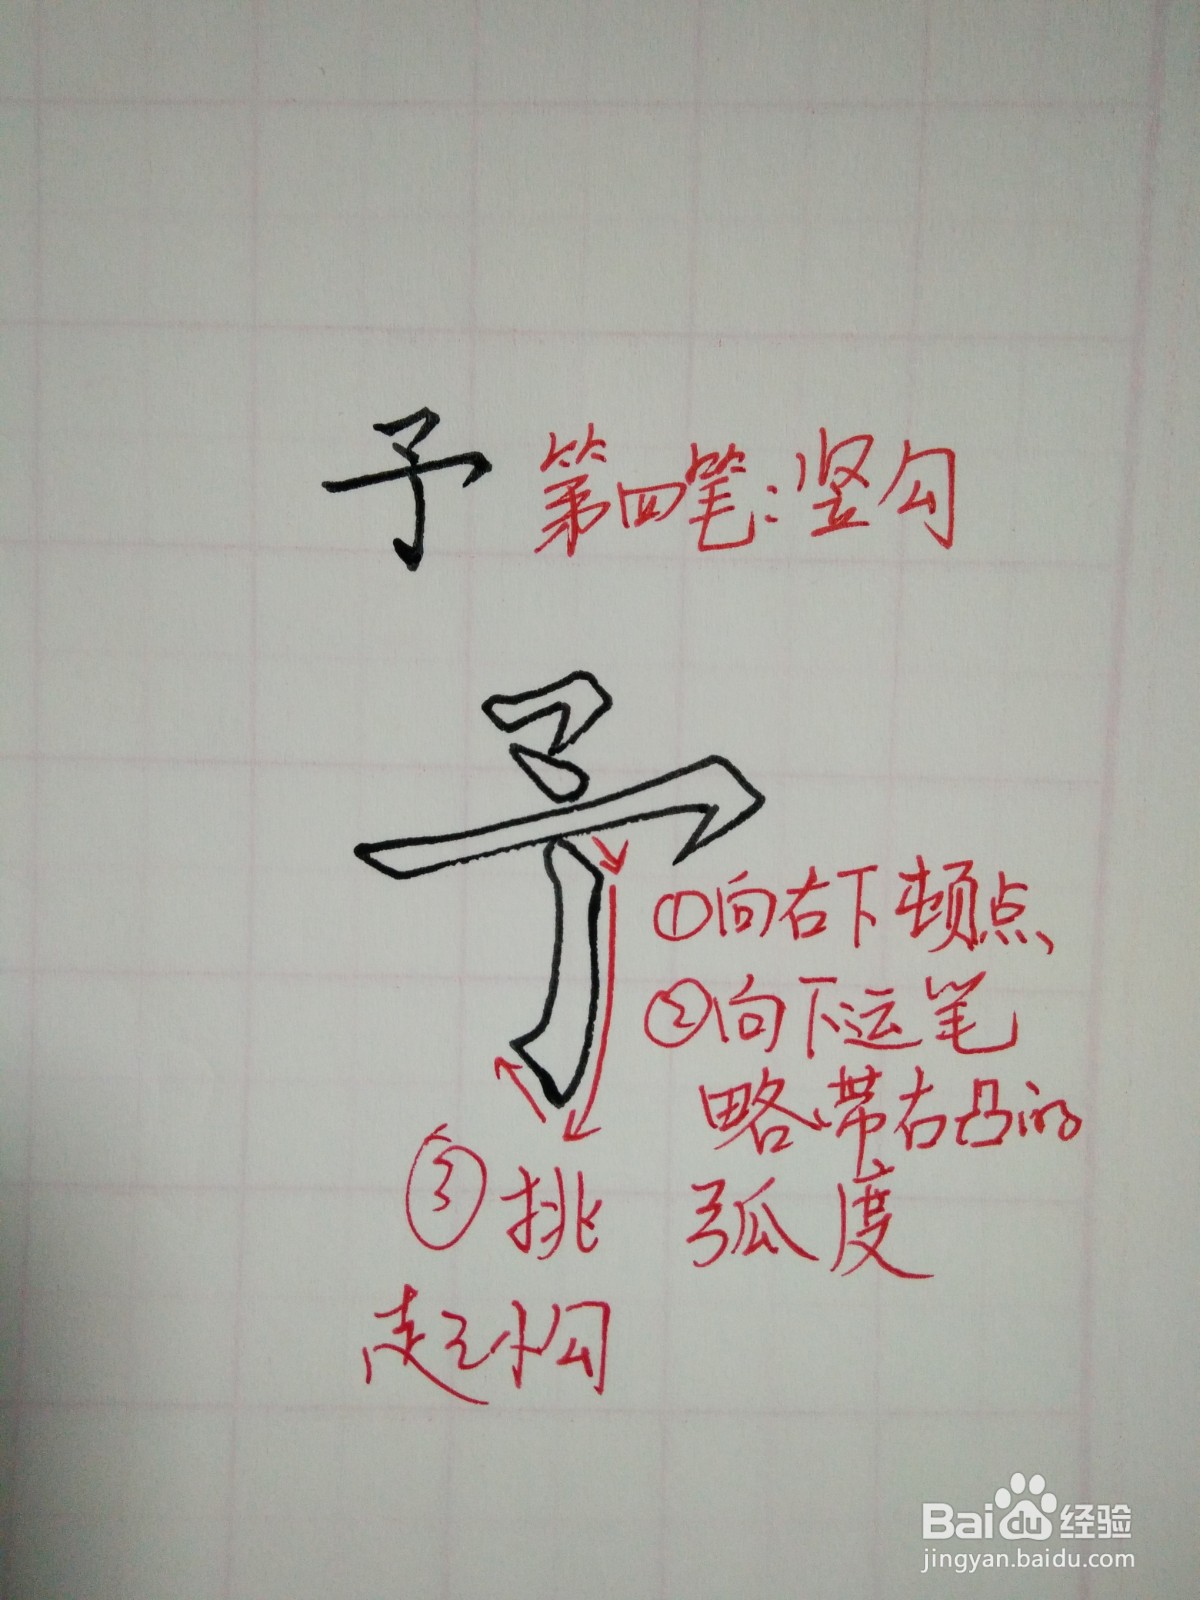 予 第四笔:竖勾
予
①向右下顿点
②向下运笔
略带右凸的
弧度
③挑
起小勾
Baidu 经验
jingyan.baidu.com